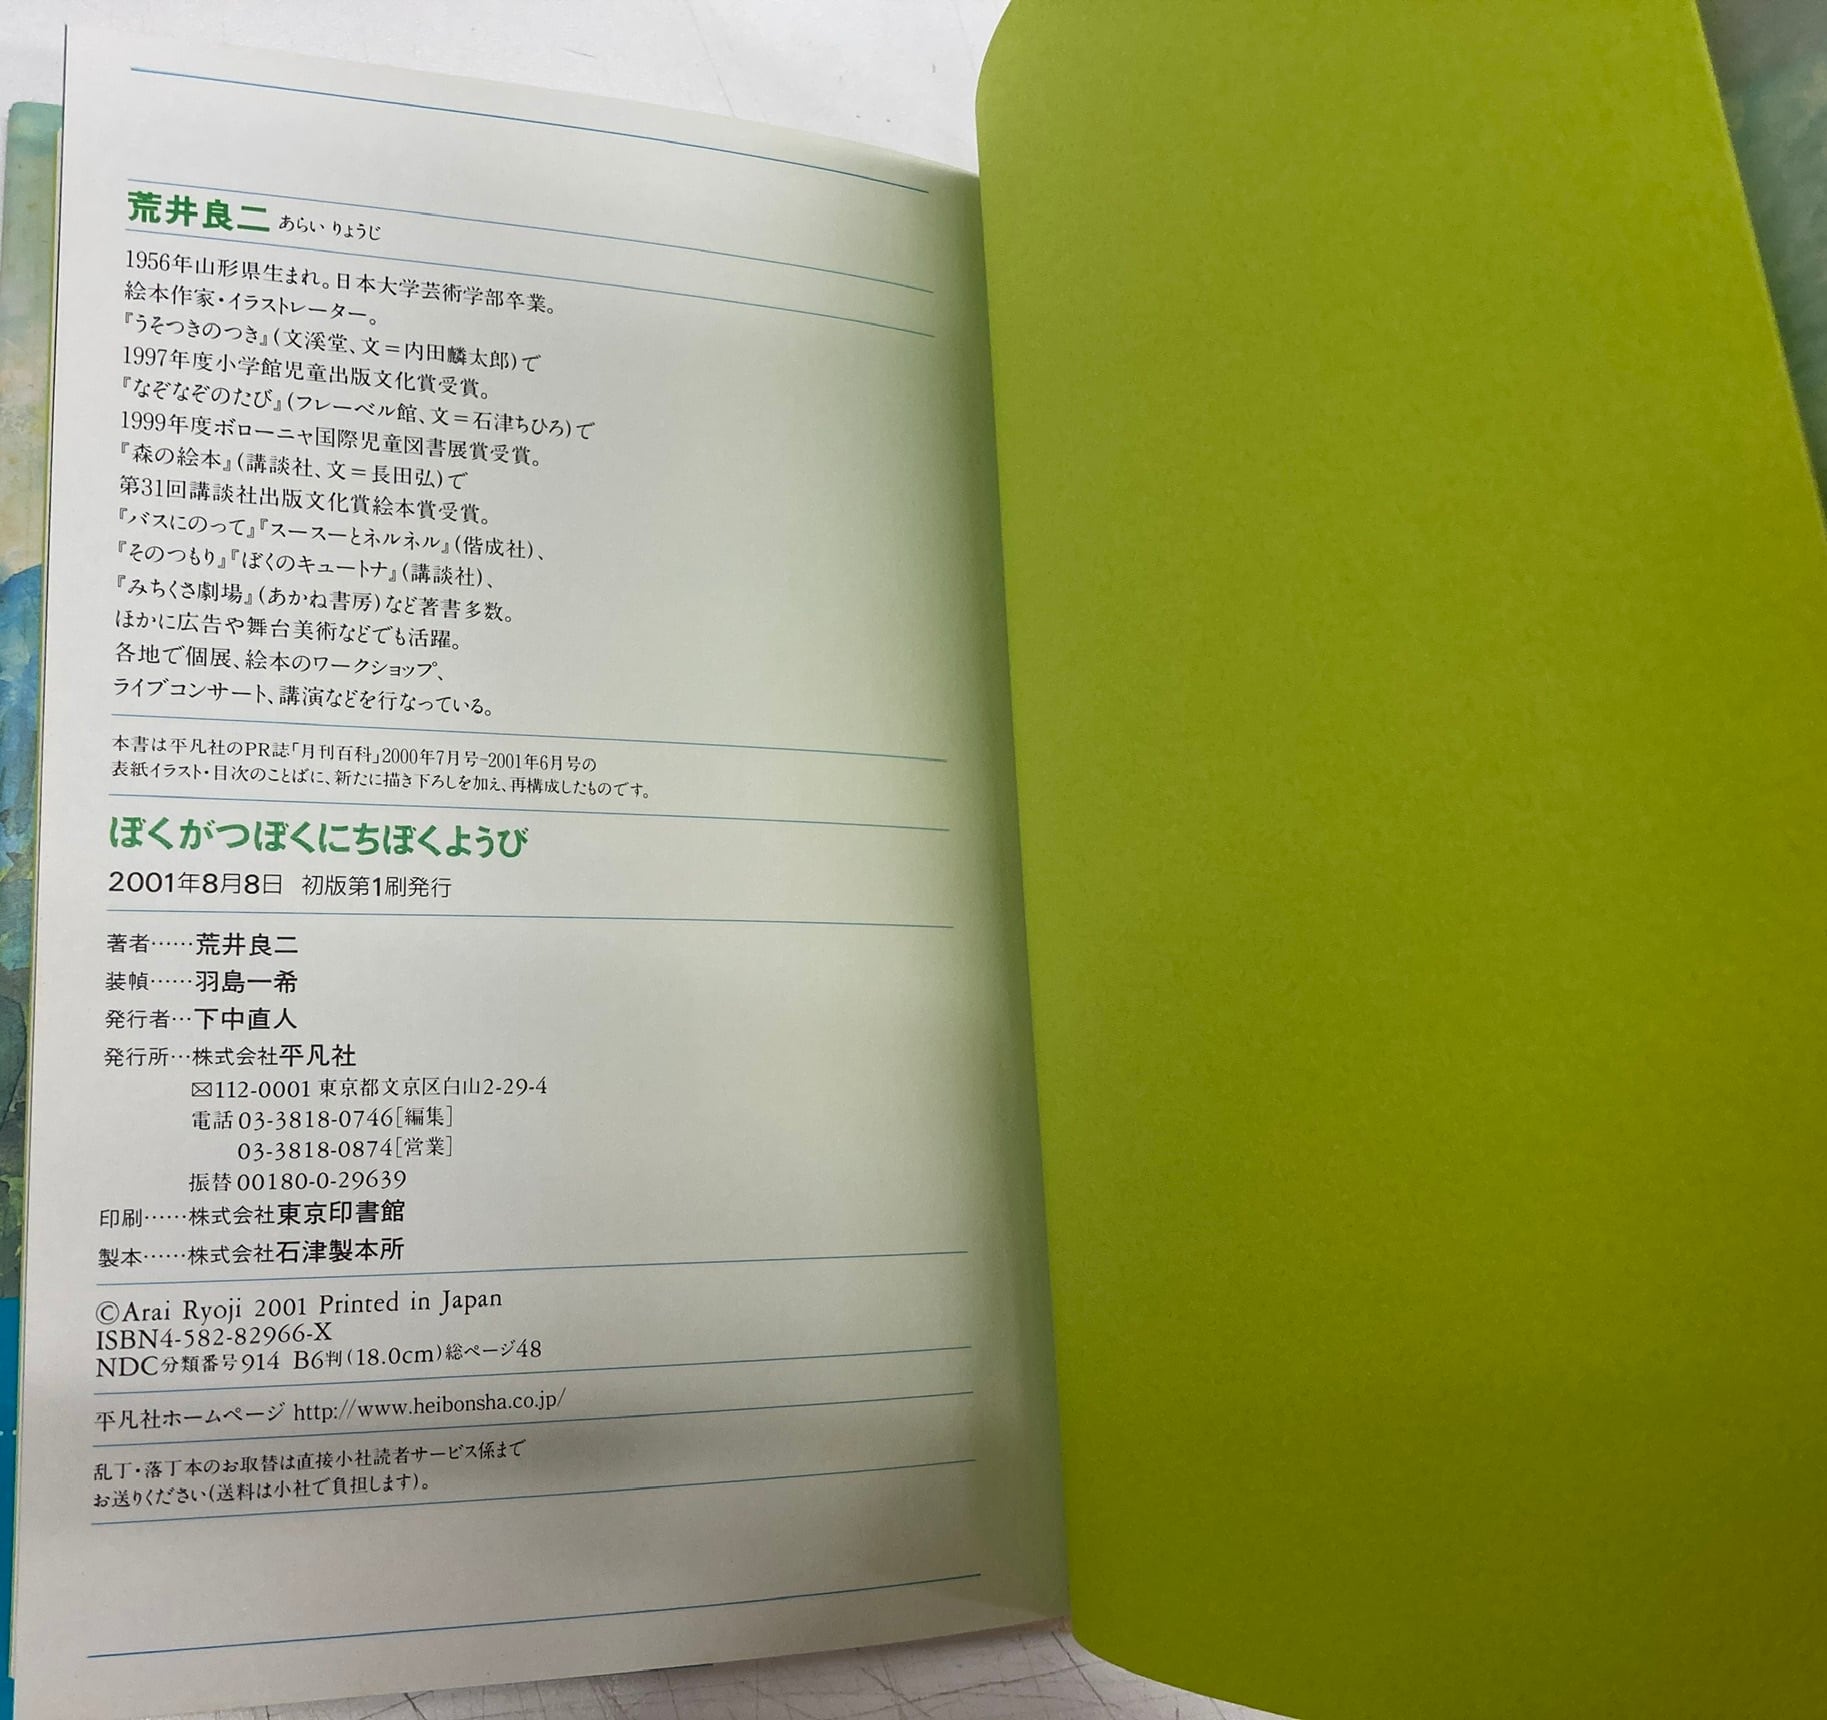 荒井良二 あらい りょうじ
1956年山形県生まれ。日本大学芸術学部卒業。
絵本作家・イラストレーター。
『うそつきのつき』(文溪堂、文=内田麟太郎)で
1997年度小学館児童出版文化賞受賞。
『なぞなぞのたび』(フレーベル館、文=石津ちひろ)で
1999年度ボローニャ国際児童図書展賞受賞。
『森の絵本』(講談社、文=長田弘)で
第31回講談社出版文化賞絵本賞受賞。
『バスにのって』『スースーとネルネル』(偕成社)、
『そのつもり』『ぼくのキュートナ』(講談社)、
『みちくさ劇場』(あかね書房)など著書多数。
ほかに広告や舞台美術などでも活躍。
各地で個展、絵本のワークショップ、
ライブコンサート、講演などを行なっている。
本書は平凡社のPR誌「月刊百科」2000年7月号-2001年6月号の
表紙イラスト・目次のことばに、新たに描き下ろしを加え、再構成したものです。
ぼくがつぼくにちぼくようび
2001年8月8日 初版第1刷発行
著者……荒井良二
装幀……羽島一希
発行者…下中直人
発行所…株式会社平凡社
〒112-0001 東京都文京区白山2-29-4
電話03-3818-0746[編集]
03-3818-0874[営業]
振替00180-0-29639
印刷……株式会社東京印書館
製本……株式会社石津製本所
©Arai Ryoji 2001 Printed in Japan
ISBN4-582-82966-X
NDC分類番号914 B6判(18.0cm)総ページ48
平凡社ホームページ http://www.heibonsha.co.jp/
乱丁・落丁本のお取替は直接小社読者サービス係まで
お送りください(送料は小社で負担します)。